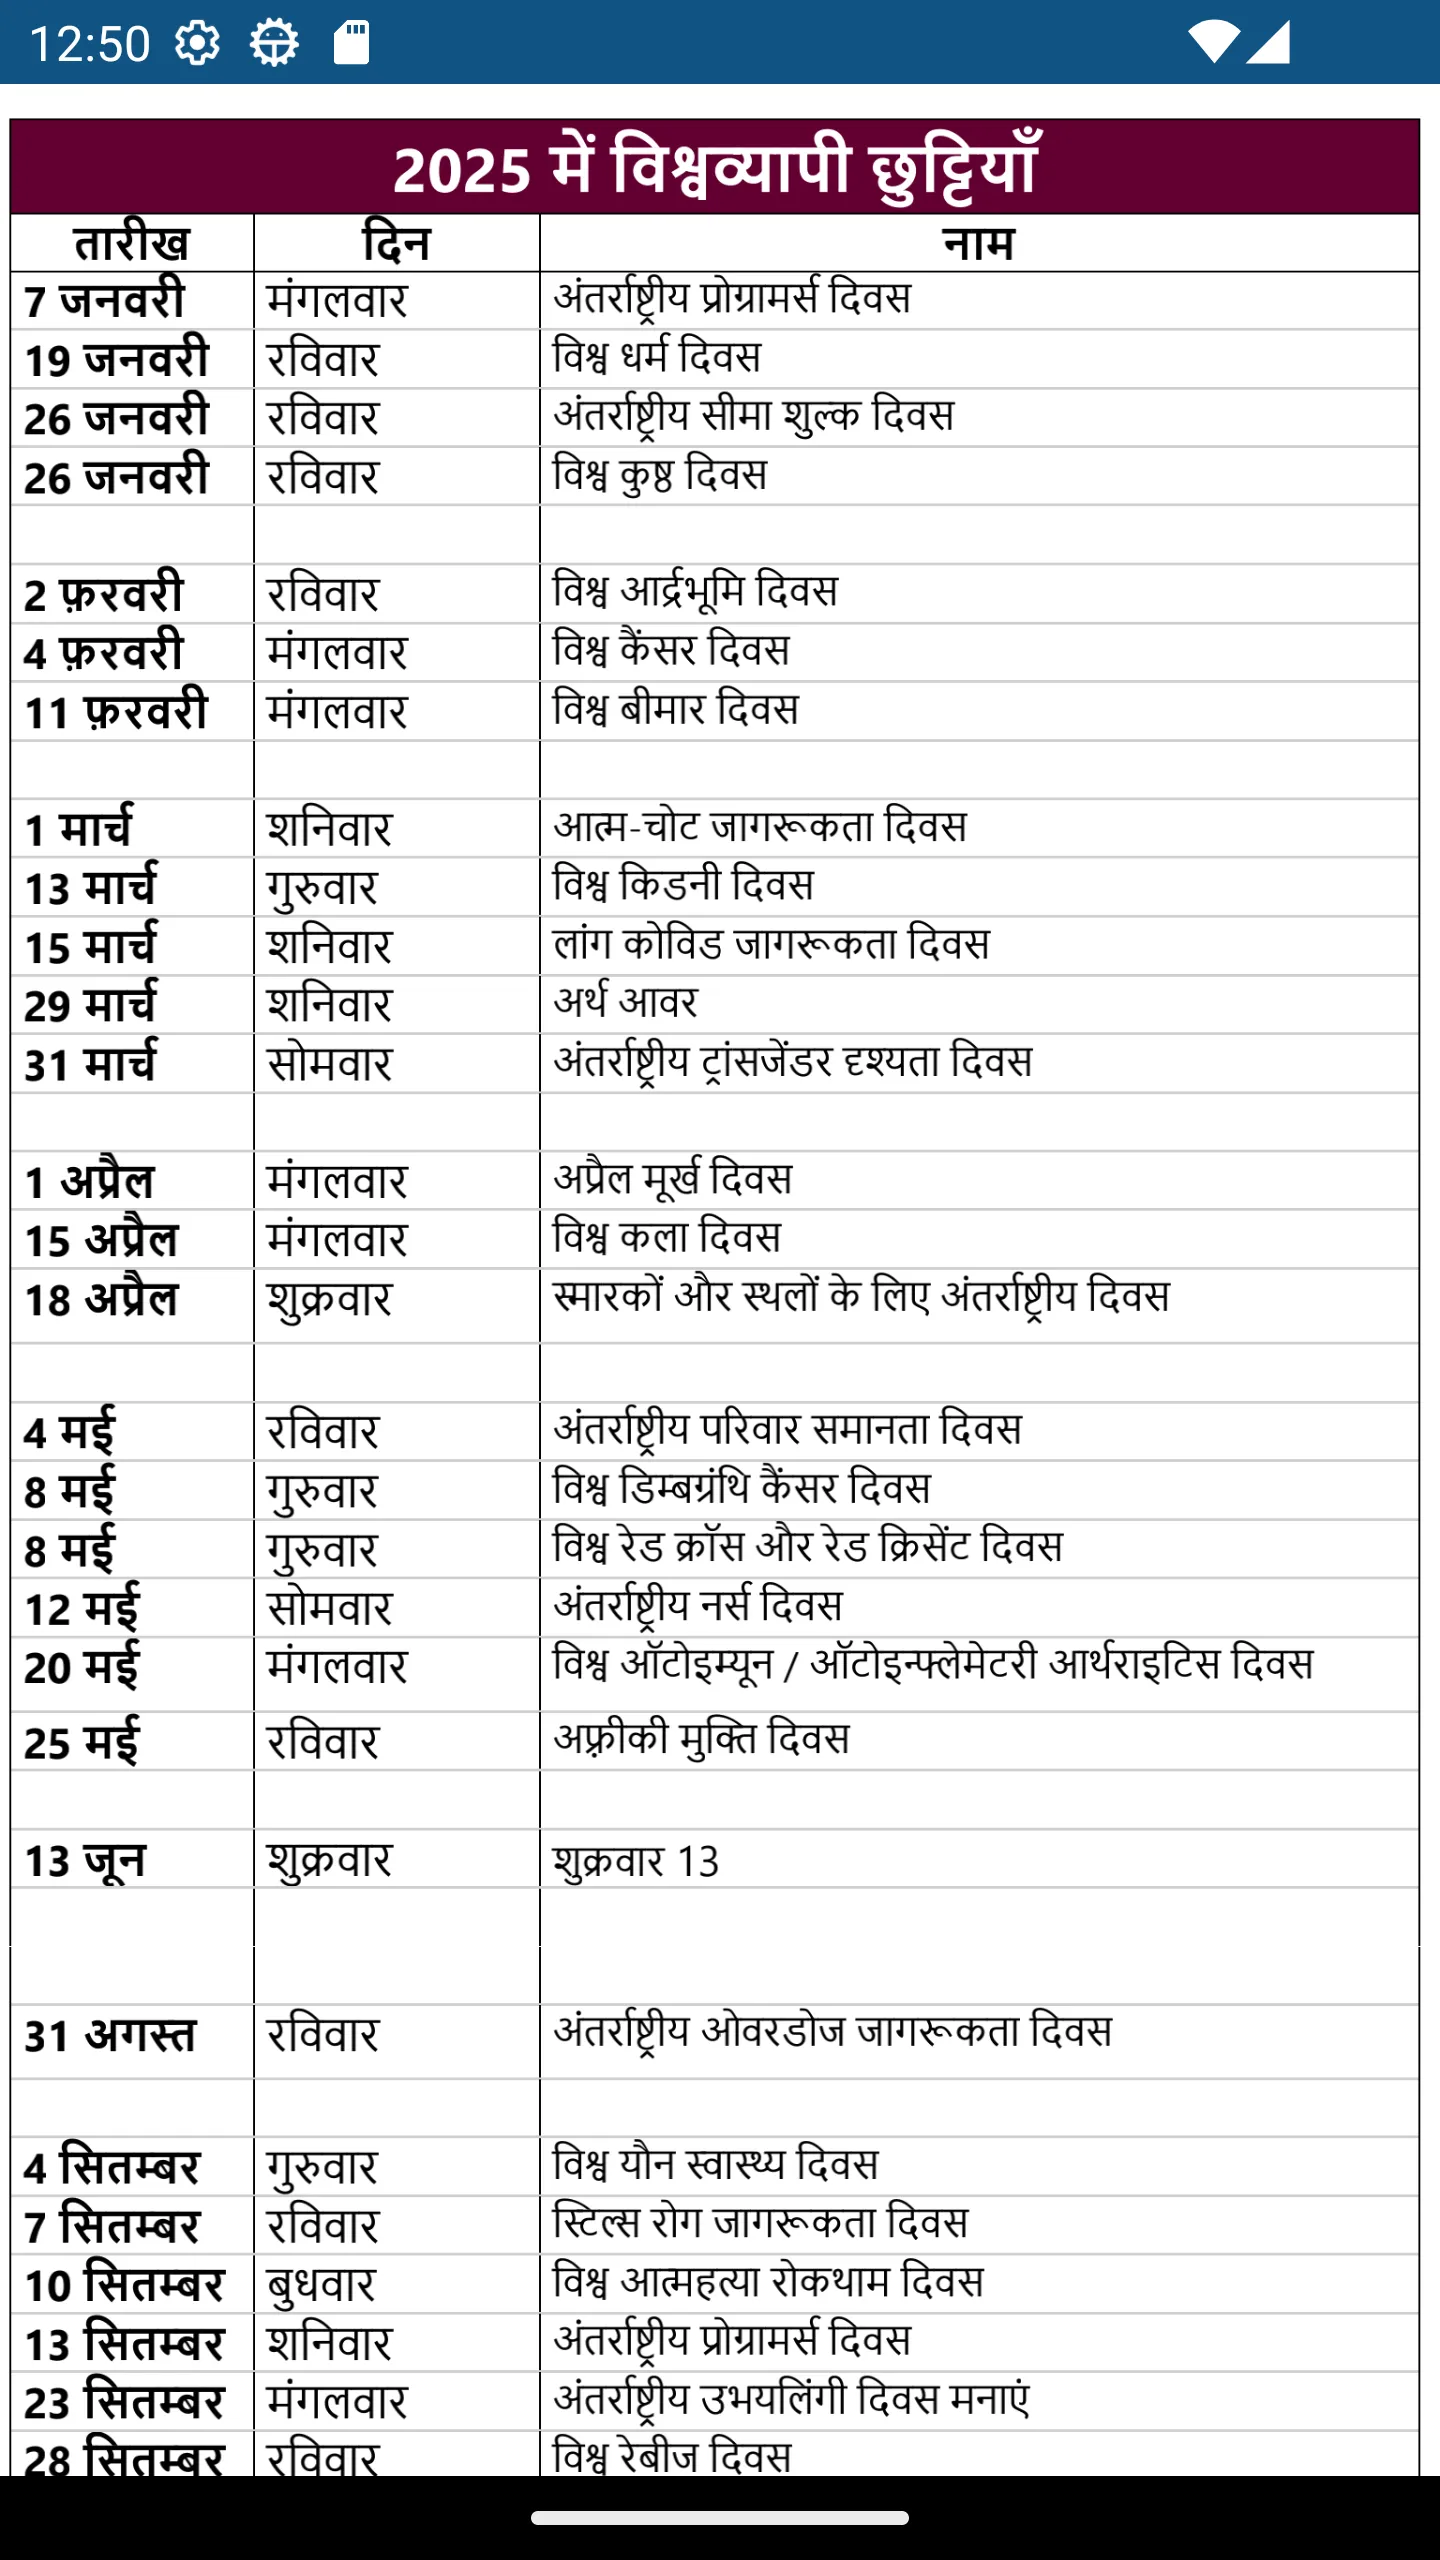 12:50
2025 में विश्वव्यापी छुट्टियाँ
तारीख दिन नाम
7 जनवरी मंगलवार अंतर्राष्ट्रीय प्रोग्रामर्स दिवस
19 जनवरी रविवार विश्व धर्म दिवस
26 जनवरी रविवार अंतर्राष्ट्रीय सीमा शुल्क दिवस
26 जनवरी रविवार विश्व कुष्ठ दिवस
2 फ़रवरी रविवार विश्व आर्द्रभूमि दिवस
4 फ़रवरी मंगलवार विश्व कैंसर दिवस
11 फ़रवरी मंगलवार विश्व बीमार दिवस
1 मार्च शनिवार आत्म-चोट जागरूकता दिवस
13 मार्च गुरुवार विश्व किडनी दिवस
15 मार्च शनिवार लांग कोविड जागरूकता दिवस
29 मार्च शनिवार अर्थ आवर
31 मार्च सोमवार अंतर्राष्ट्रीय ट्रांसजेंडर दृश्यता दिवस
1 अप्रैल मंगलवार अप्रैल मूर्ख दिवस
15 अप्रैल मंगलवार विश्व कला दिवस
18 अप्रैल शुक्रवार स्मारकों और स्थलों के लिए अंतर्राष्ट्रीय दिवस
4 मई रविवार अंतर्राष्ट्रीय परिवार समानता दिवस
8 मई गुरुवार विश्व डिम्बग्रंथि कैंसर दिवस
8 मई गुरुवार विश्व रेड क्रॉस और रेड क्रिसेंट दिवस
12 मई सोमवार अंतर्राष्ट्रीय नर्स दिवस
20 मई मंगलवार विश्व ऑटोइम्यून / ऑटोइन्फ्लेमेटरी आर्थराइटिस दिवस
25 मई रविवार अफ़्रीकी मुक्ति दिवस
13 जून शुक्रवार शुक्रवार 13
31 अगस्त रविवार अंतर्राष्ट्रीय ओवरडोज जागरूकता दिवस
4 सितम्बर गुरुवार विश्व यौन स्वास्थ्य दिवस
7 सितम्बर रविवार स्टिल्स रोग जागरूकता दिवस
10 सितम्बर बुधवार विश्व आत्महत्या रोकथाम दिवस
13 सितम्बर शनिवार अंतर्राष्ट्रीय प्रोग्रामर्स दिवस
23 सितम्बर मंगलवार अंतर्राष्ट्रीय उभयलिंगी दिवस मनाएं
28 सितम्बर रविवार विश्व रेबीज दिवस